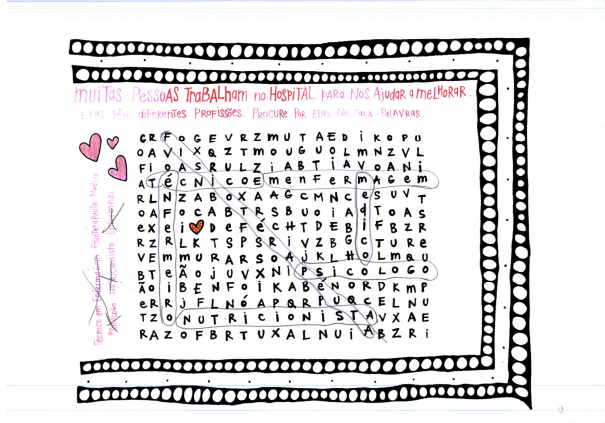 muitas Pessoas Trabalham no Hospital para nos ajudar a melhorar.
Elas têm diferentes profissões. Procure por elas no caça palavras.
G R F O G E V R Z M U T A E D I K O P U
O A V I X Q Z T M O U G U O L M N Z V L
F I O A S R U L Z I A B T I A V O A N I
A T É C N I C O E M E N F E R M A G E M
R L N Z A B O X A A G C M N C E S U V T
O A F O C A B T R S B U O I A D T O A S
E X E I D E F É C H T D E B I F B Z R
R Z R L K T S P S R I V Z B G C T U R E
V E M M U R A R S O A J K L H O L M Q U
B T E Ã O J U V X N I P S I C O L O G O
Ã O I B E N F O I K A B É N O R D K M P
E R R J F L N Ó A P Q R P U Q C E L N U
T Z O N U T R I C I O N I S T A V X A E
R A Z O F B R T U X A L N U I A B Z R I
Técnico em Enfermagem Fisioterapeuta Médico
Nutricionista